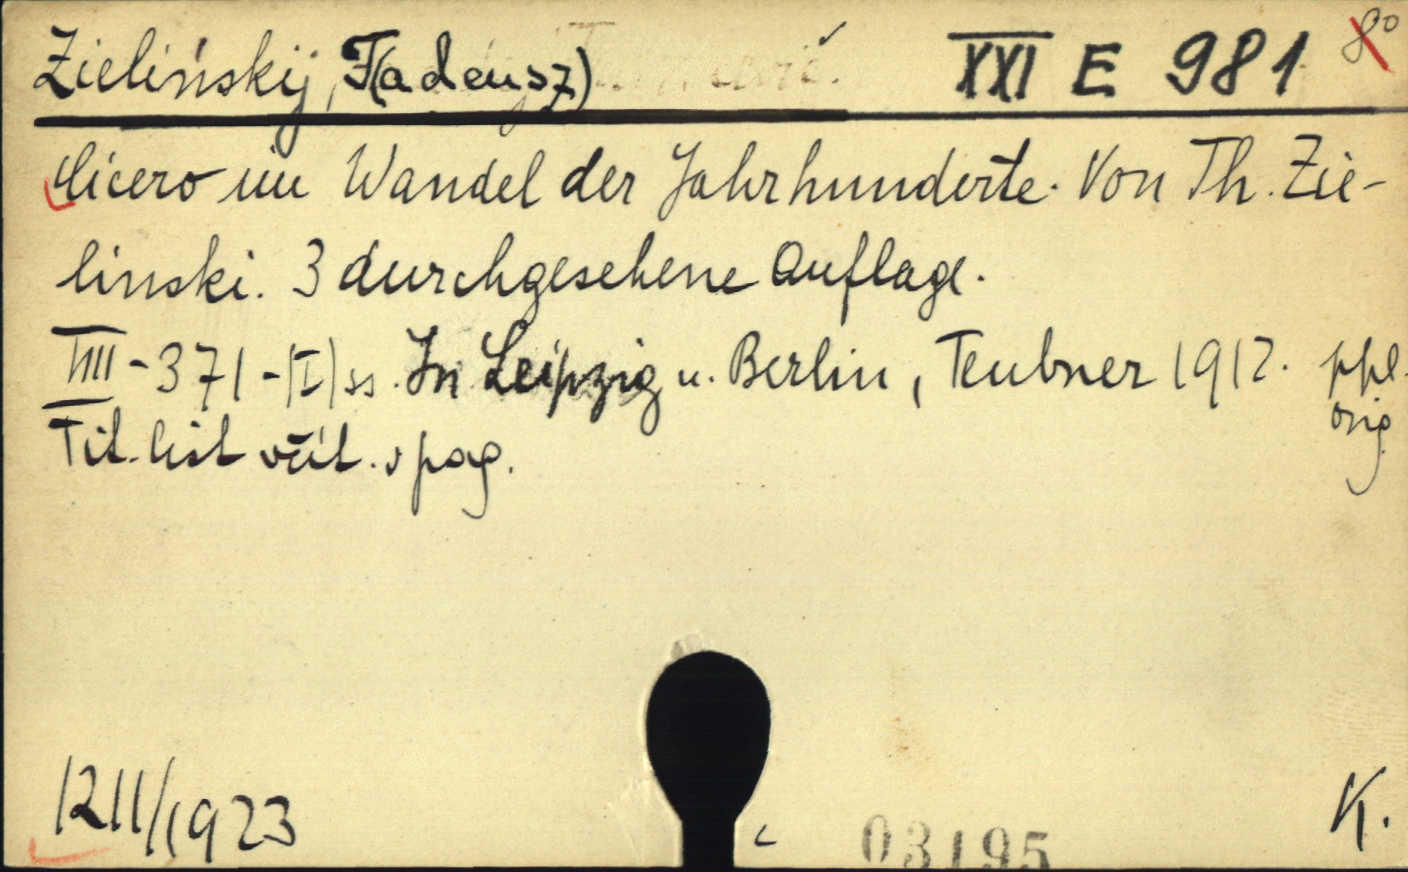 Zielińskij, T(adeusz) XXI E 981 8°
Cicero im Wandel der Jahrhunderte. Von Th. Zie-
linski. 3 durchgesehene Auflage.
VIII-371-(I) ss. In Leipzig u. Berlin, Teubner 1912. ppl.
orig.
Tit. list včít. v pag.
1211/1923
K.
03195